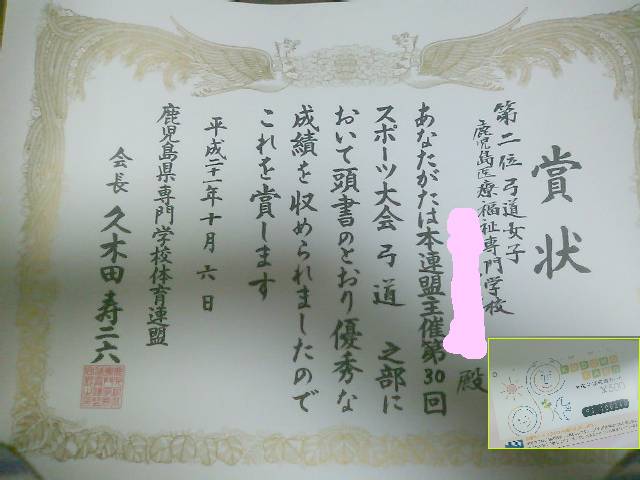 賞状
第二位 弓道女子
鹿児島医療福祉専門学校
殿
あなたがたは本連盟主催第30回
スポーツ大会 弓道 之部に
おいて頭書のとおり優秀な
成績を収められましたので
これを賞します
平成二十一年十月六日
鹿児島県専門学校体育連盟
会長 久木田寿二六
¥500